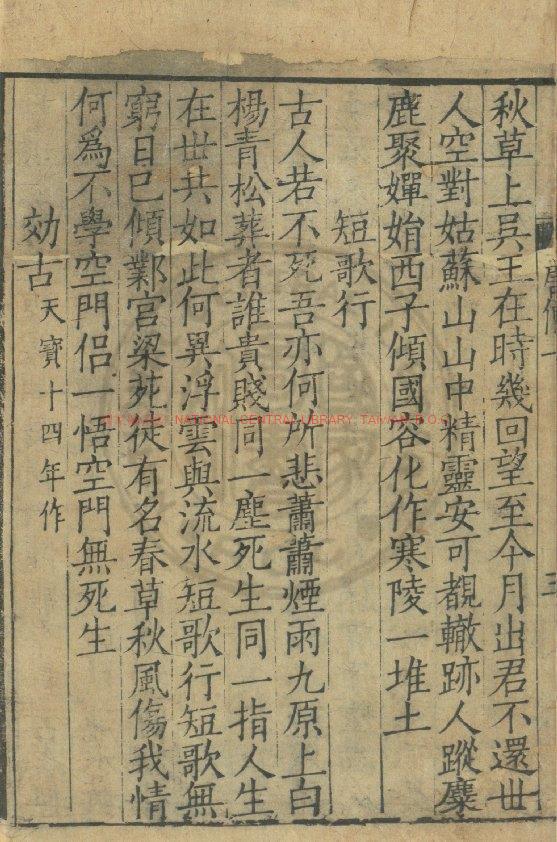 秋草上吳王在時幾回望至今月出君不還世
人空對姑蘇山山中精靈安可覩轍跡人蹤麋
鹿聚嬋娟西子傾國容化作寒陵一堆土
短歌行
古人若不死吾亦何所悲蕭蕭煙雨九原上白
楊青松葬者誰貴賤同一塵死生同一指人生
在世共如此何異浮雲與流水短歌行短歌無
窮日已傾鄴宮梁苑徒有名春草秋風傷我情
何爲不學空門侶一悟空門無死生
効古天寶十四年作
三
NATIONAL CENTRAL LIBRARY, TAIWAN R.O.C